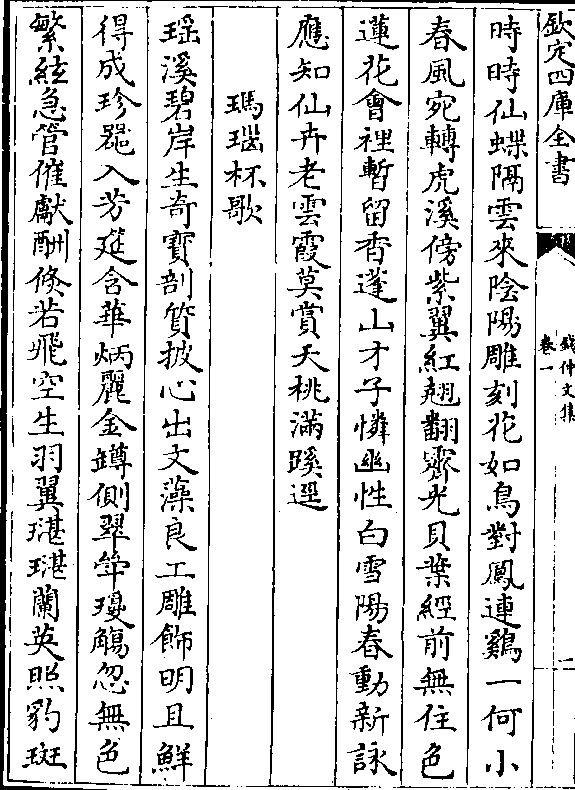 欽定四庫全書
錢仲文集
卷一
二
時時仙蝶隔雲來陰陽雕刻花如鳥對鳳連鷄一何小
春風宛轉虎溪傍紫翼紅翹翻霽光貝葉經前無住色
蓮花會裡暫留香蓬山才子憐幽性白雪陽春動新詠
應知仙卉老雲霞莫賞夭桃滿蹊逕
瑪瑙杯歌
瑶溪碧岸生奇寳剖質披心出文藻良工雕飾明且鮮
得成珍器入芳筵含華炳麗金罇側翠斝瓊觴忽無色
繁絃急管催獻酬倐若飛空生羽翼湛湛蘭英照豹斑